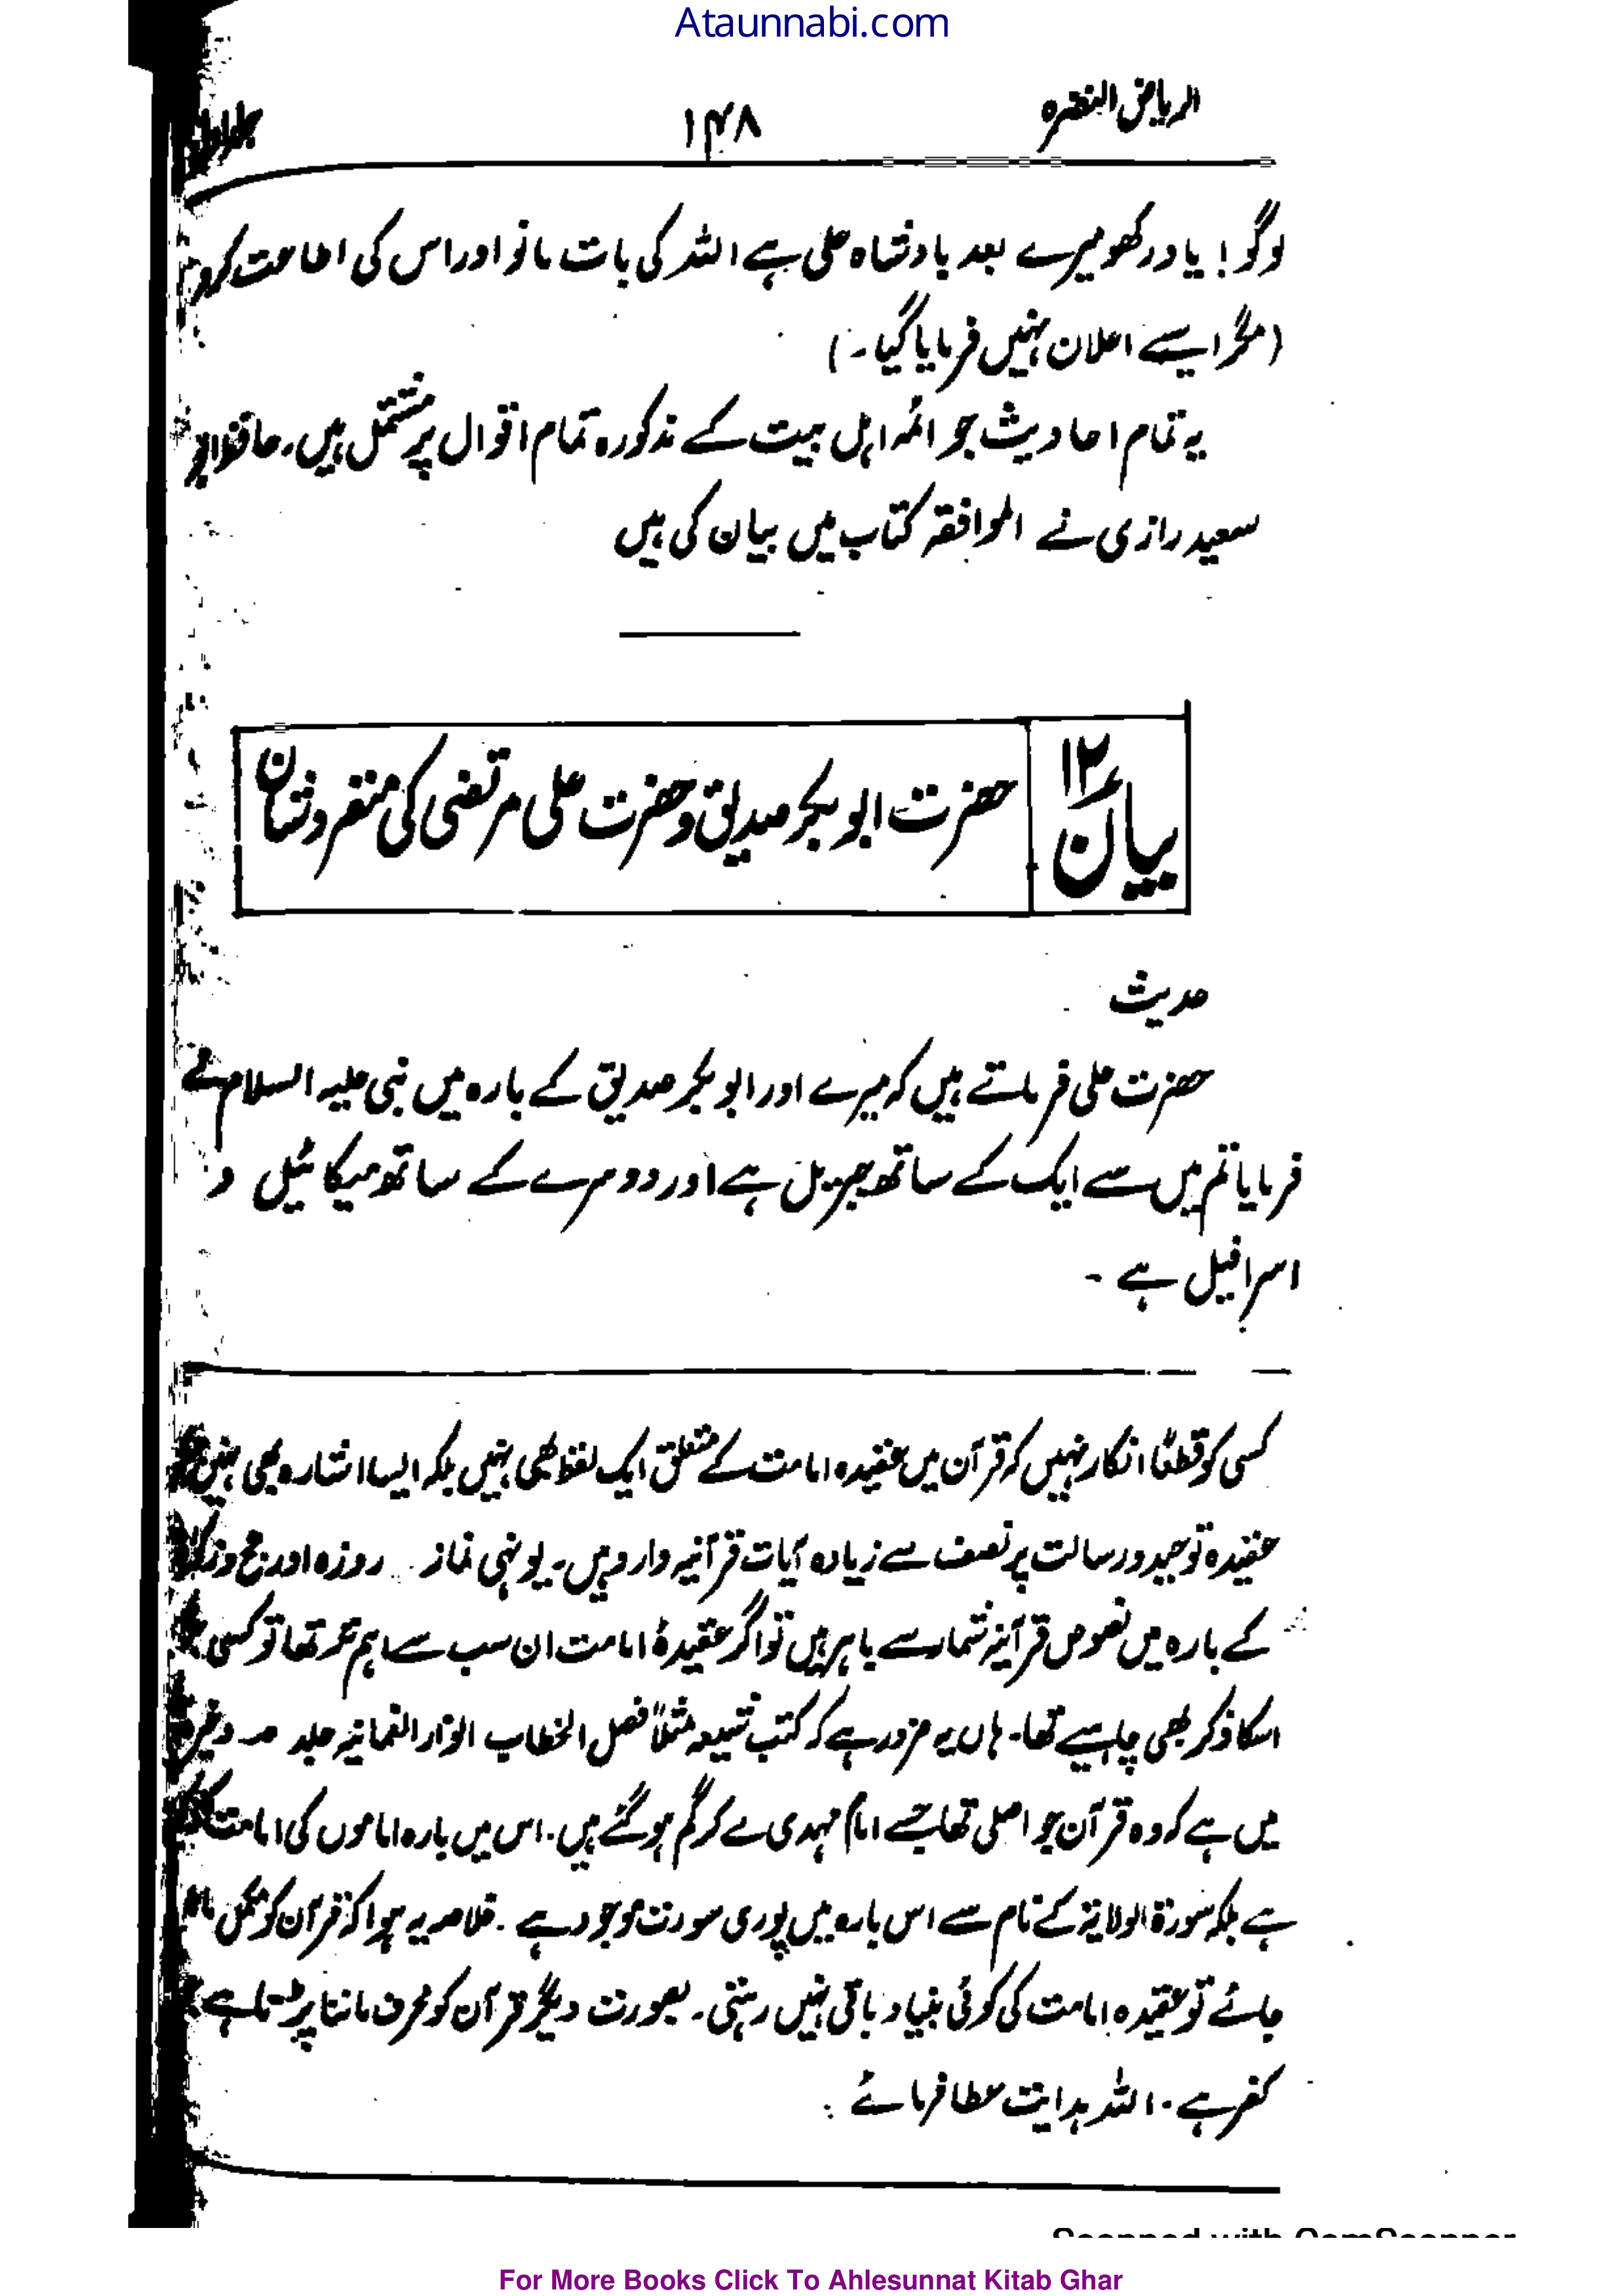 Ataunnabi.com
الریاض النضرہ ۱۴۸ جلد اول
لوگو! یاد رکھو میرے بعد بادشاہ علی ہے اللہ کی بات مانو اور اس کی اطاعت کرو
(مگر ایسے اعلان نہیں فرمایا گیا۔)
یہ تمام احادیث جو ائمہ اہل بیت کے مذکورہ تمام اقوال پر مشتمل ہیں۔ حافظ ابو
سعید رازی نے الموافقہ کتاب میں بیان کی ہیں
بیان ۱۲ حضرت ابوبکر صدیق و حضرت علی مرتضی کی منفرد شان
حدیث
حضرت علی فرماتے ہیں کہ میرے اور ابوبکر صدیق کے بارہ میں نبی علیہ السلام نے
فرمایا تم میں سے ایک کے ساتھ جبریل ہے اور دوسرے کے ساتھ میکائیل و
اسرافیل ہے ۔
کسی کو قطعًا انکار نہیں کہ قرآن میں عقیدہ امامت کے متعلق ایک لفظ بھی نہیں بلکہ ایسا اشارہ بھی نہیں
عقیدہ توحید و رسالت پر نصف سے زیادہ آیات قرآنیہ وارد ہیں۔ یونہی نماز روزہ اور حج و زکوٰۃ
کے بارہ میں نصوص قرآنیہ شمار سے باہر ہیں تو اگر عقیدۂ امامت ان سب سے اہم تر تھا تو کسی
اسکا ذکر بھی چاہیے تھا۔ ہاں یہ ضرور ہے کہ کتب شیعہ مثلاً فصل الخطاب انوار النعمانیہ جلد وغیرہ
میں ہے کہ وہ قرآن جو اصلی تھا جسے امام مہدی لے کر گم ہو گئے ہیں۔ اس میں بارہ اماموں کی امامت کا
ہے بلکہ سورۃ الولایۃ کے نام سے اس بارہ میں پوری سورت موجود ہے ۔ خلاصہ یہ ہوا کہ قرآن کو مکمل مانا
جائے تو عقیدہ امامت کی کوئی بنیاد باقی نہیں رہتی۔ بصورت دیگر قرآن کو محرف ماننا پڑتا ہے
کفر ہے ۔ اللہ ہدایت عطا فرمائے
For More Books Click To Ahlesunnat Kitab Ghar